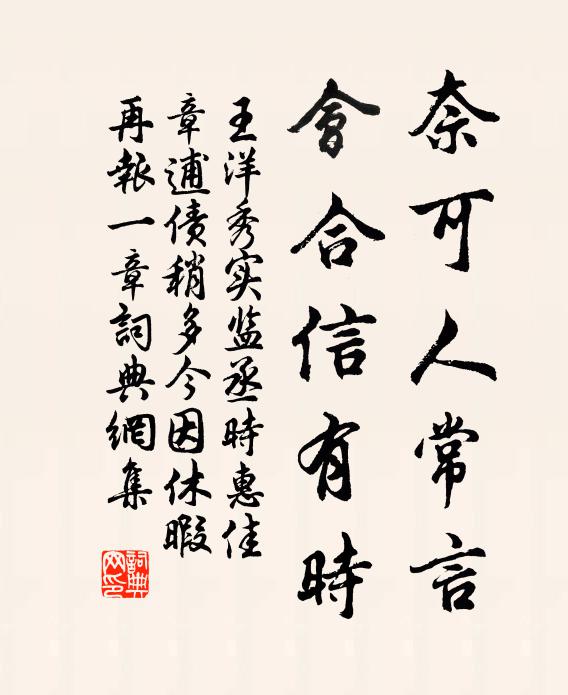 奈可人常言
會合信有時
王洋秀实监丞時惠佳
章逋债稍多今因休暇
再報一章詞典網集
詞典
网印